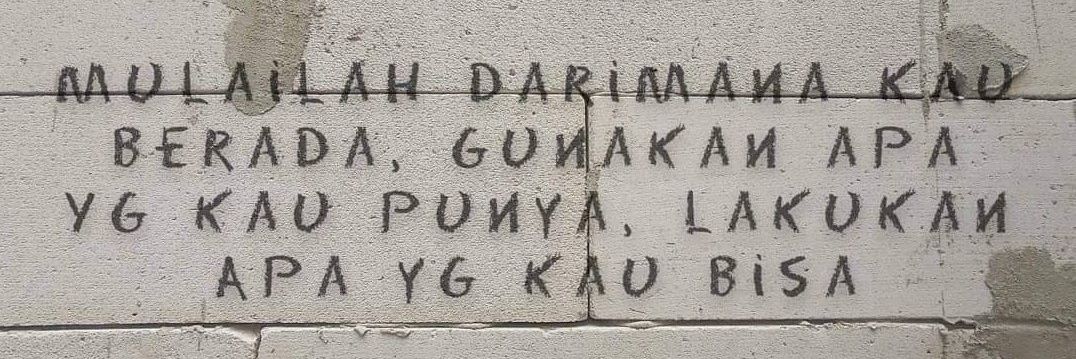 MULAiLAH DARiMANA KAU
BERADA, GUNAKAN APA
YG KAU PUNYA, LAKUKAN
APA YG KAU BiSA